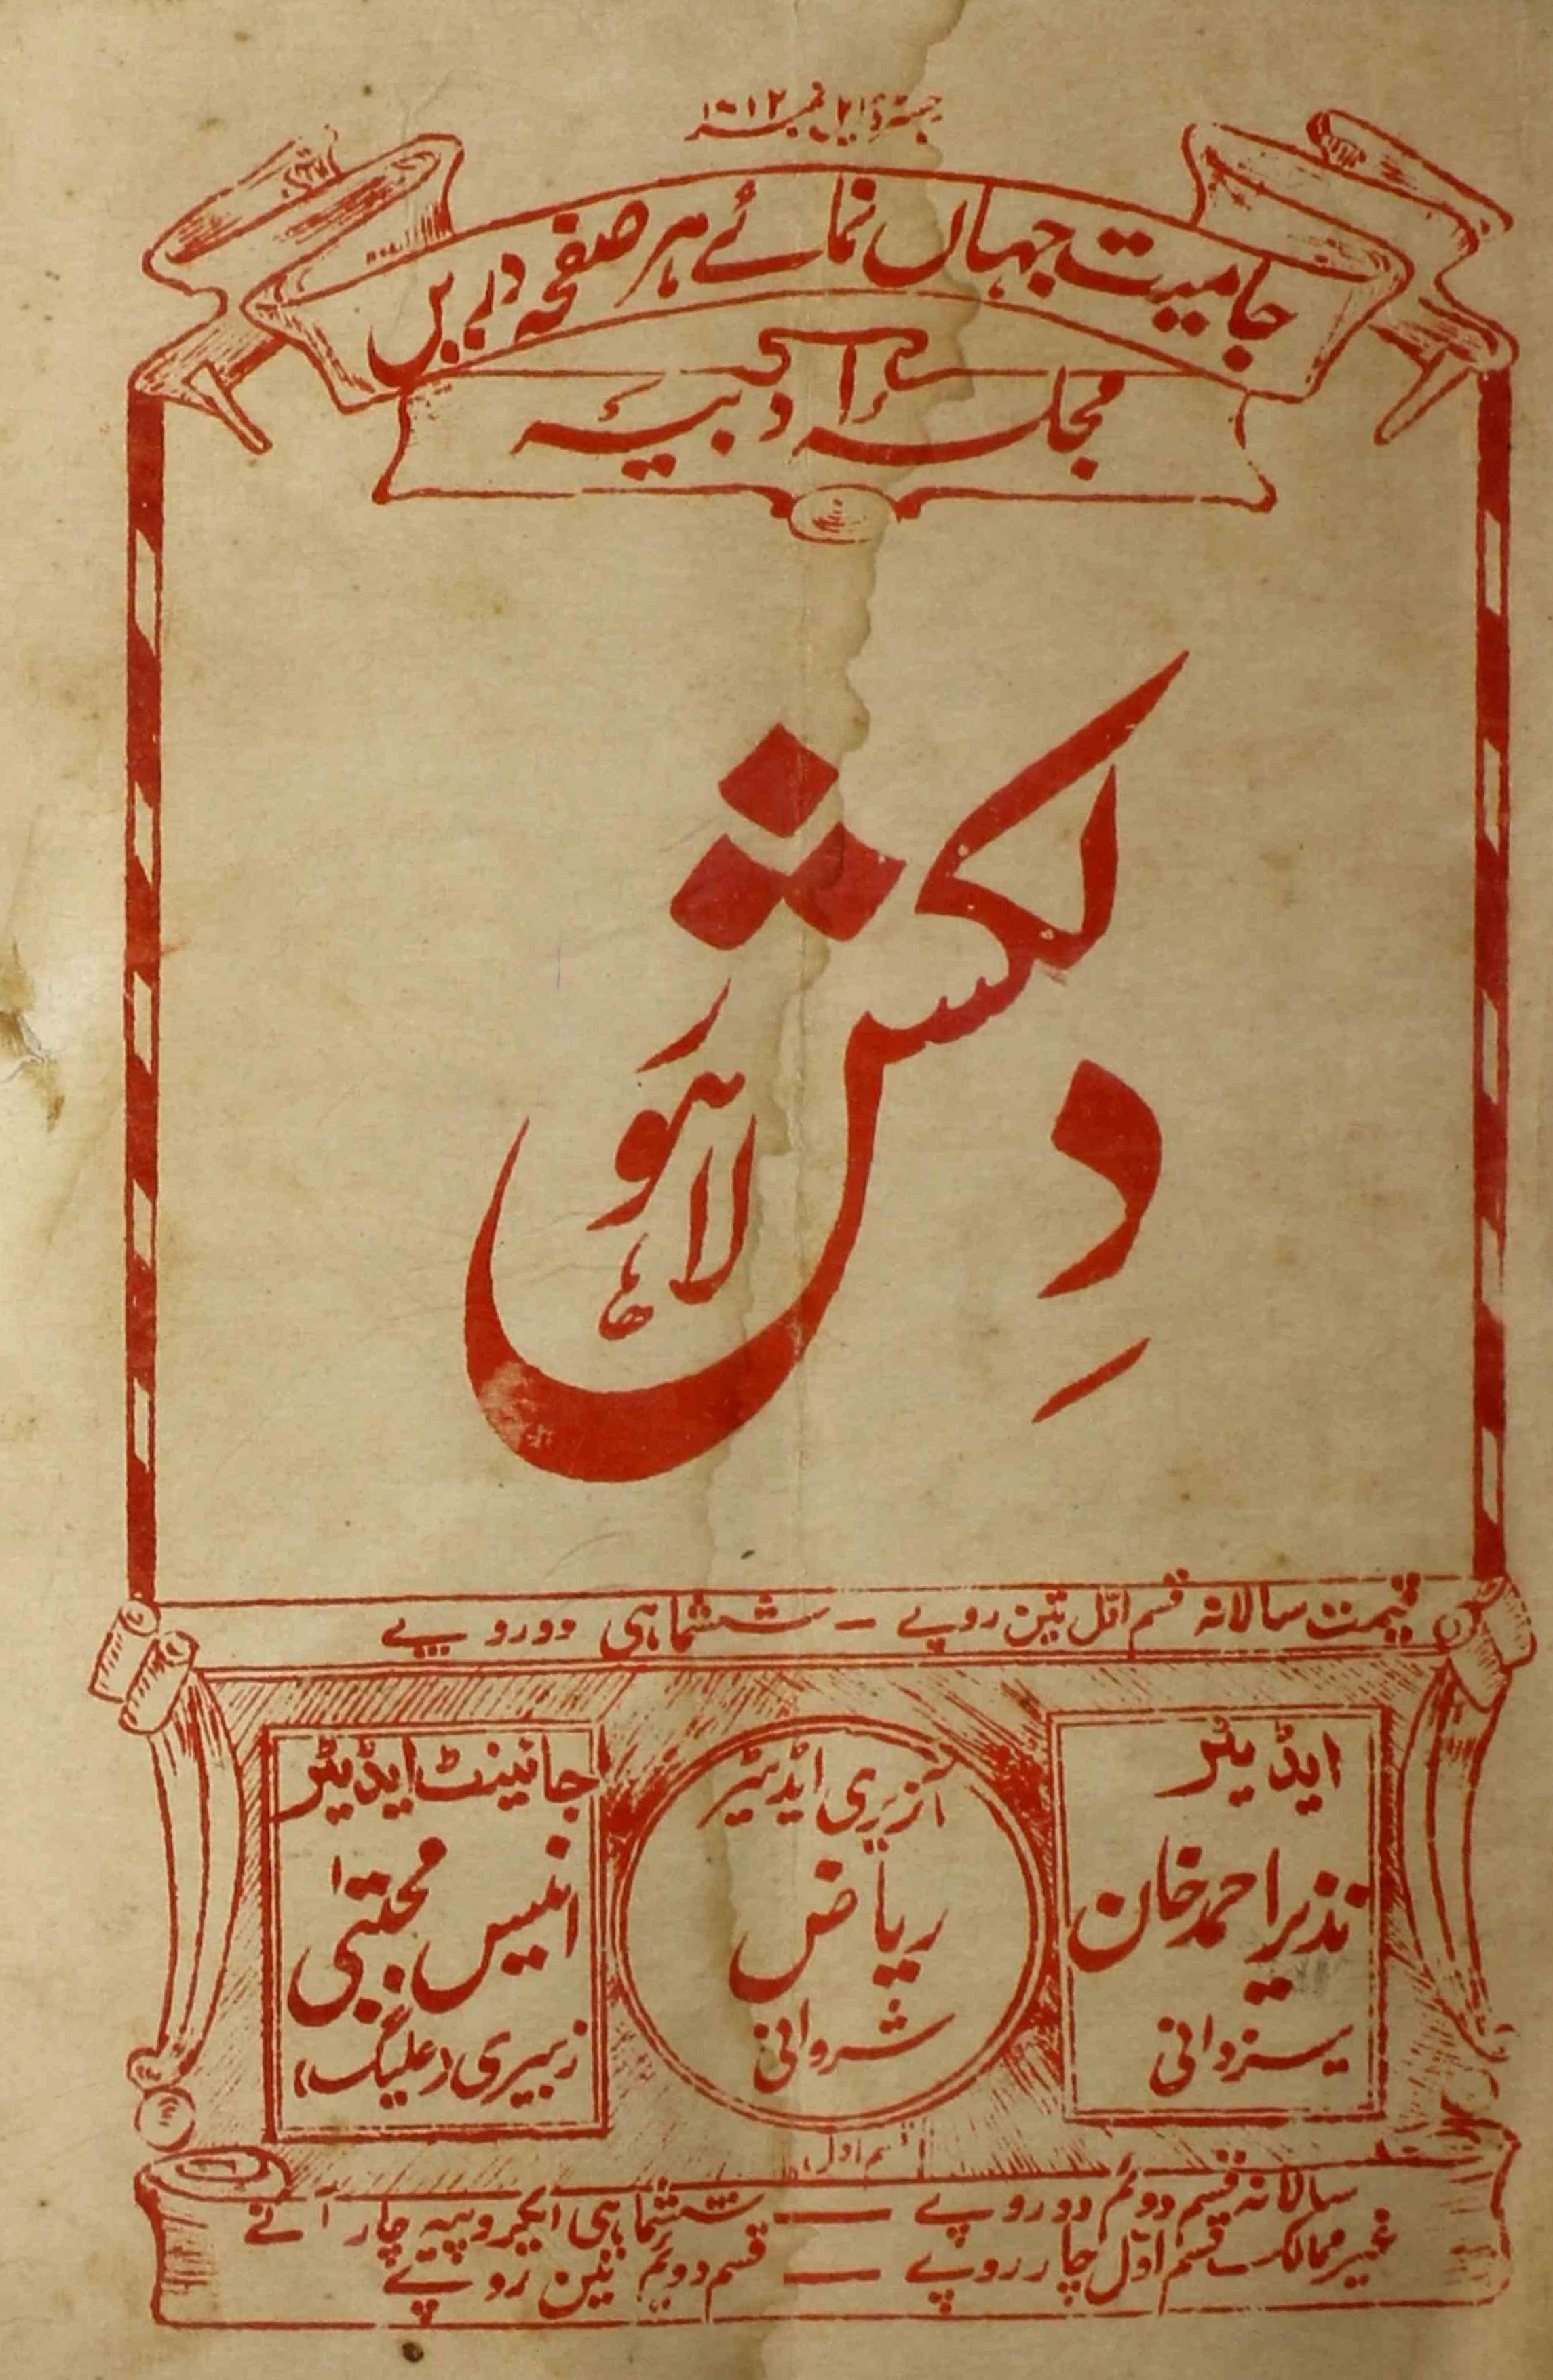 رجسٹرڈ ایل نمبر ۱۰۱۲
جامیست جہاں نمائے ہر صفحہ دریں
مجلسہ ادبیہ
دِلکش
لاہور
قیمت سالانہ قسم اوّل تین روپے - ششماہی دو روپے
ایڈیٹر
نذیر احمد خان
سنروانی
آنریری ایڈیٹر
ریاض
شروانی
جائینٹ ایڈیٹر
انیس مجتبیٰ
زبیری (علیگ)
قسم اول
سالانہ قسم دوئم دو روپے — ششماہی ایکروپیہ چار آنے
غیر ممالک قسم اوّل چار روپے — قسم دوئم تین روپے